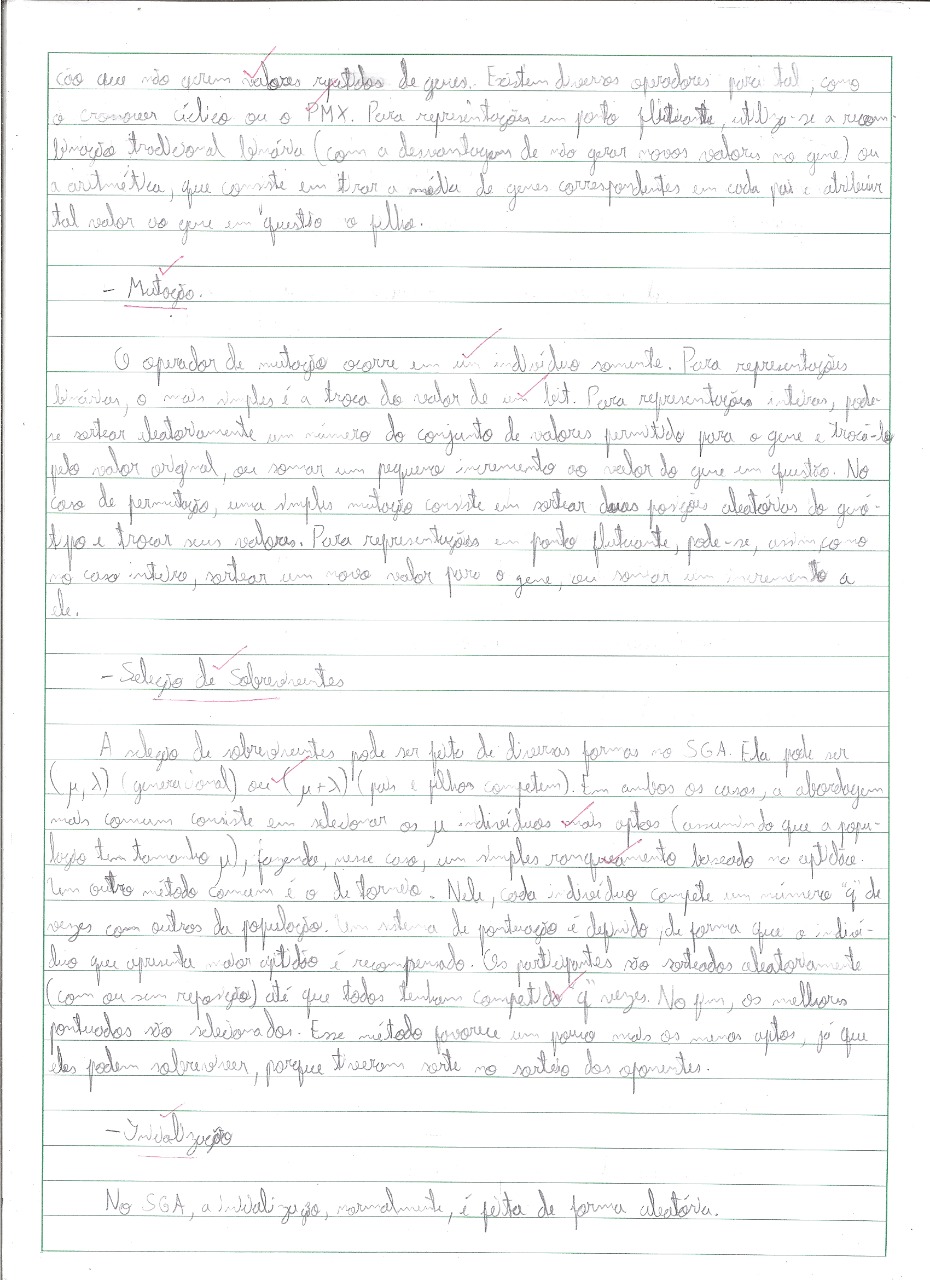 ção que não gerem valores repetidos de genes. Existem diversos operadores para tal, como
o crossover cíclico ou o PMX. Para representações em ponto flutuante, utiliza-se a recom-
binação tradicional binária (com a desvantagem de não gerar novos valores no gene) ou
a aritmética, que consiste em tirar a média de genes correspondentes em cada pai e atribuir
tal valor ao gene em questão o filho.
- Mutação.
O operador de mutação ocorre em um indivíduo somente. Para representações
binárias, o mais simples é a troca do valor de um bit. Para representações inteiras, pode-
se sortear aleatoriamente um número do conjunto de valores permitido para o gene e trocá-lo
pelo valor original, ou somar um pequeno incremento ao valor do gene em questão. No
caso de permutação, uma simples mutação consiste em sortear duas posições aleatórias do genó-
tipo e trocar seus valores. Para representações em ponto flutuante, pode-se, assim como
no caso inteiro, sortear um novo valor para o gene, ou somar um incremento a
ele.
- Seleção de Sobreviventes
A seleção de sobreviventes pode ser feita de diversas formas no SGA. Ela pode ser
(μ, λ) (generacional) ou (μ + λ) (pais e filhos competem). Em ambos os casos, a abordagem
mais comum consiste em selecionar os μ indivíduos mais aptos (assumindo que a popu-
lação tem tamanho μ), fazendo, nesse caso, um simples ranqueamento baseado na aptidão.
Um outro método comum é o de torneio. Nele, cada indivíduo compete um número "q" de
vezes com outros da população. Um sistema de pontuação é definido, de forma que o indiví-
duo que apresenta maior aptidão é recompensado. Os participantes são sorteados aleatoriamente
(com ou sem reposição) até que todos tenham competido "q" vezes. No fim, os melhores
pontuados são selecionados. Esse método favorece um pouco mais os menos aptos, já que
eles podem sobreviver, porque tiveram sorte no sorteio dos oponentes.
- Inicialização
No SGA, a inicialização, normalmente, é feita de forma aleatória.